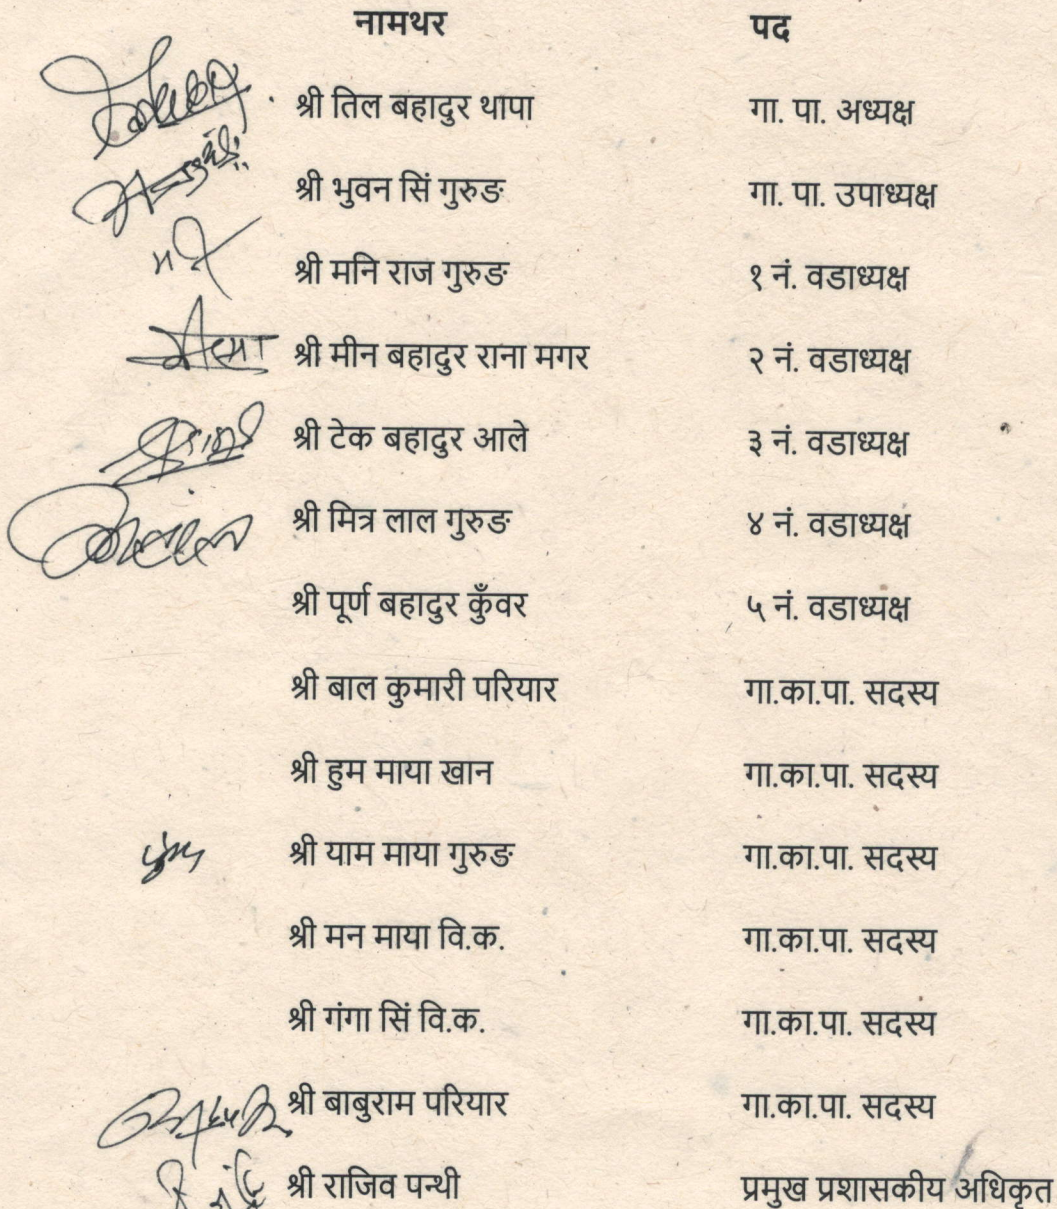 नामथर पद
श्री तिल बहादुर थापा गा. पा. अध्यक्ष
श्री भुवन सिं गुरुङ गा. पा. उपाध्यक्ष
श्री मनि राज गुरुङ १ नं. वडाध्यक्ष
श्री मीन बहादुर राना मगर २ नं. वडाध्यक्ष
श्री टेक बहादुर आले ३ नं. वडाध्यक्ष
श्री मित्र लाल गुरुङ ४ नं. वडाध्यक्ष
श्री पूर्ण बहादुर कुँवर ५ नं. वडाध्यक्ष
श्री बाल कुमारी परियार गा.का.पा. सदस्य
श्री हुम माया खान गा.का.पा. सदस्य
श्री याम माया गुरुङ गा.का.पा. सदस्य
श्री मन माया वि.क. गा.का.पा. सदस्य
श्री गंगा सिं वि.क. गा.का.पा. सदस्य
श्री बाबुराम परियार गा.का.पा. सदस्य
श्री राजिव पन्थी प्रमुख प्रशासकीय अधिकृत